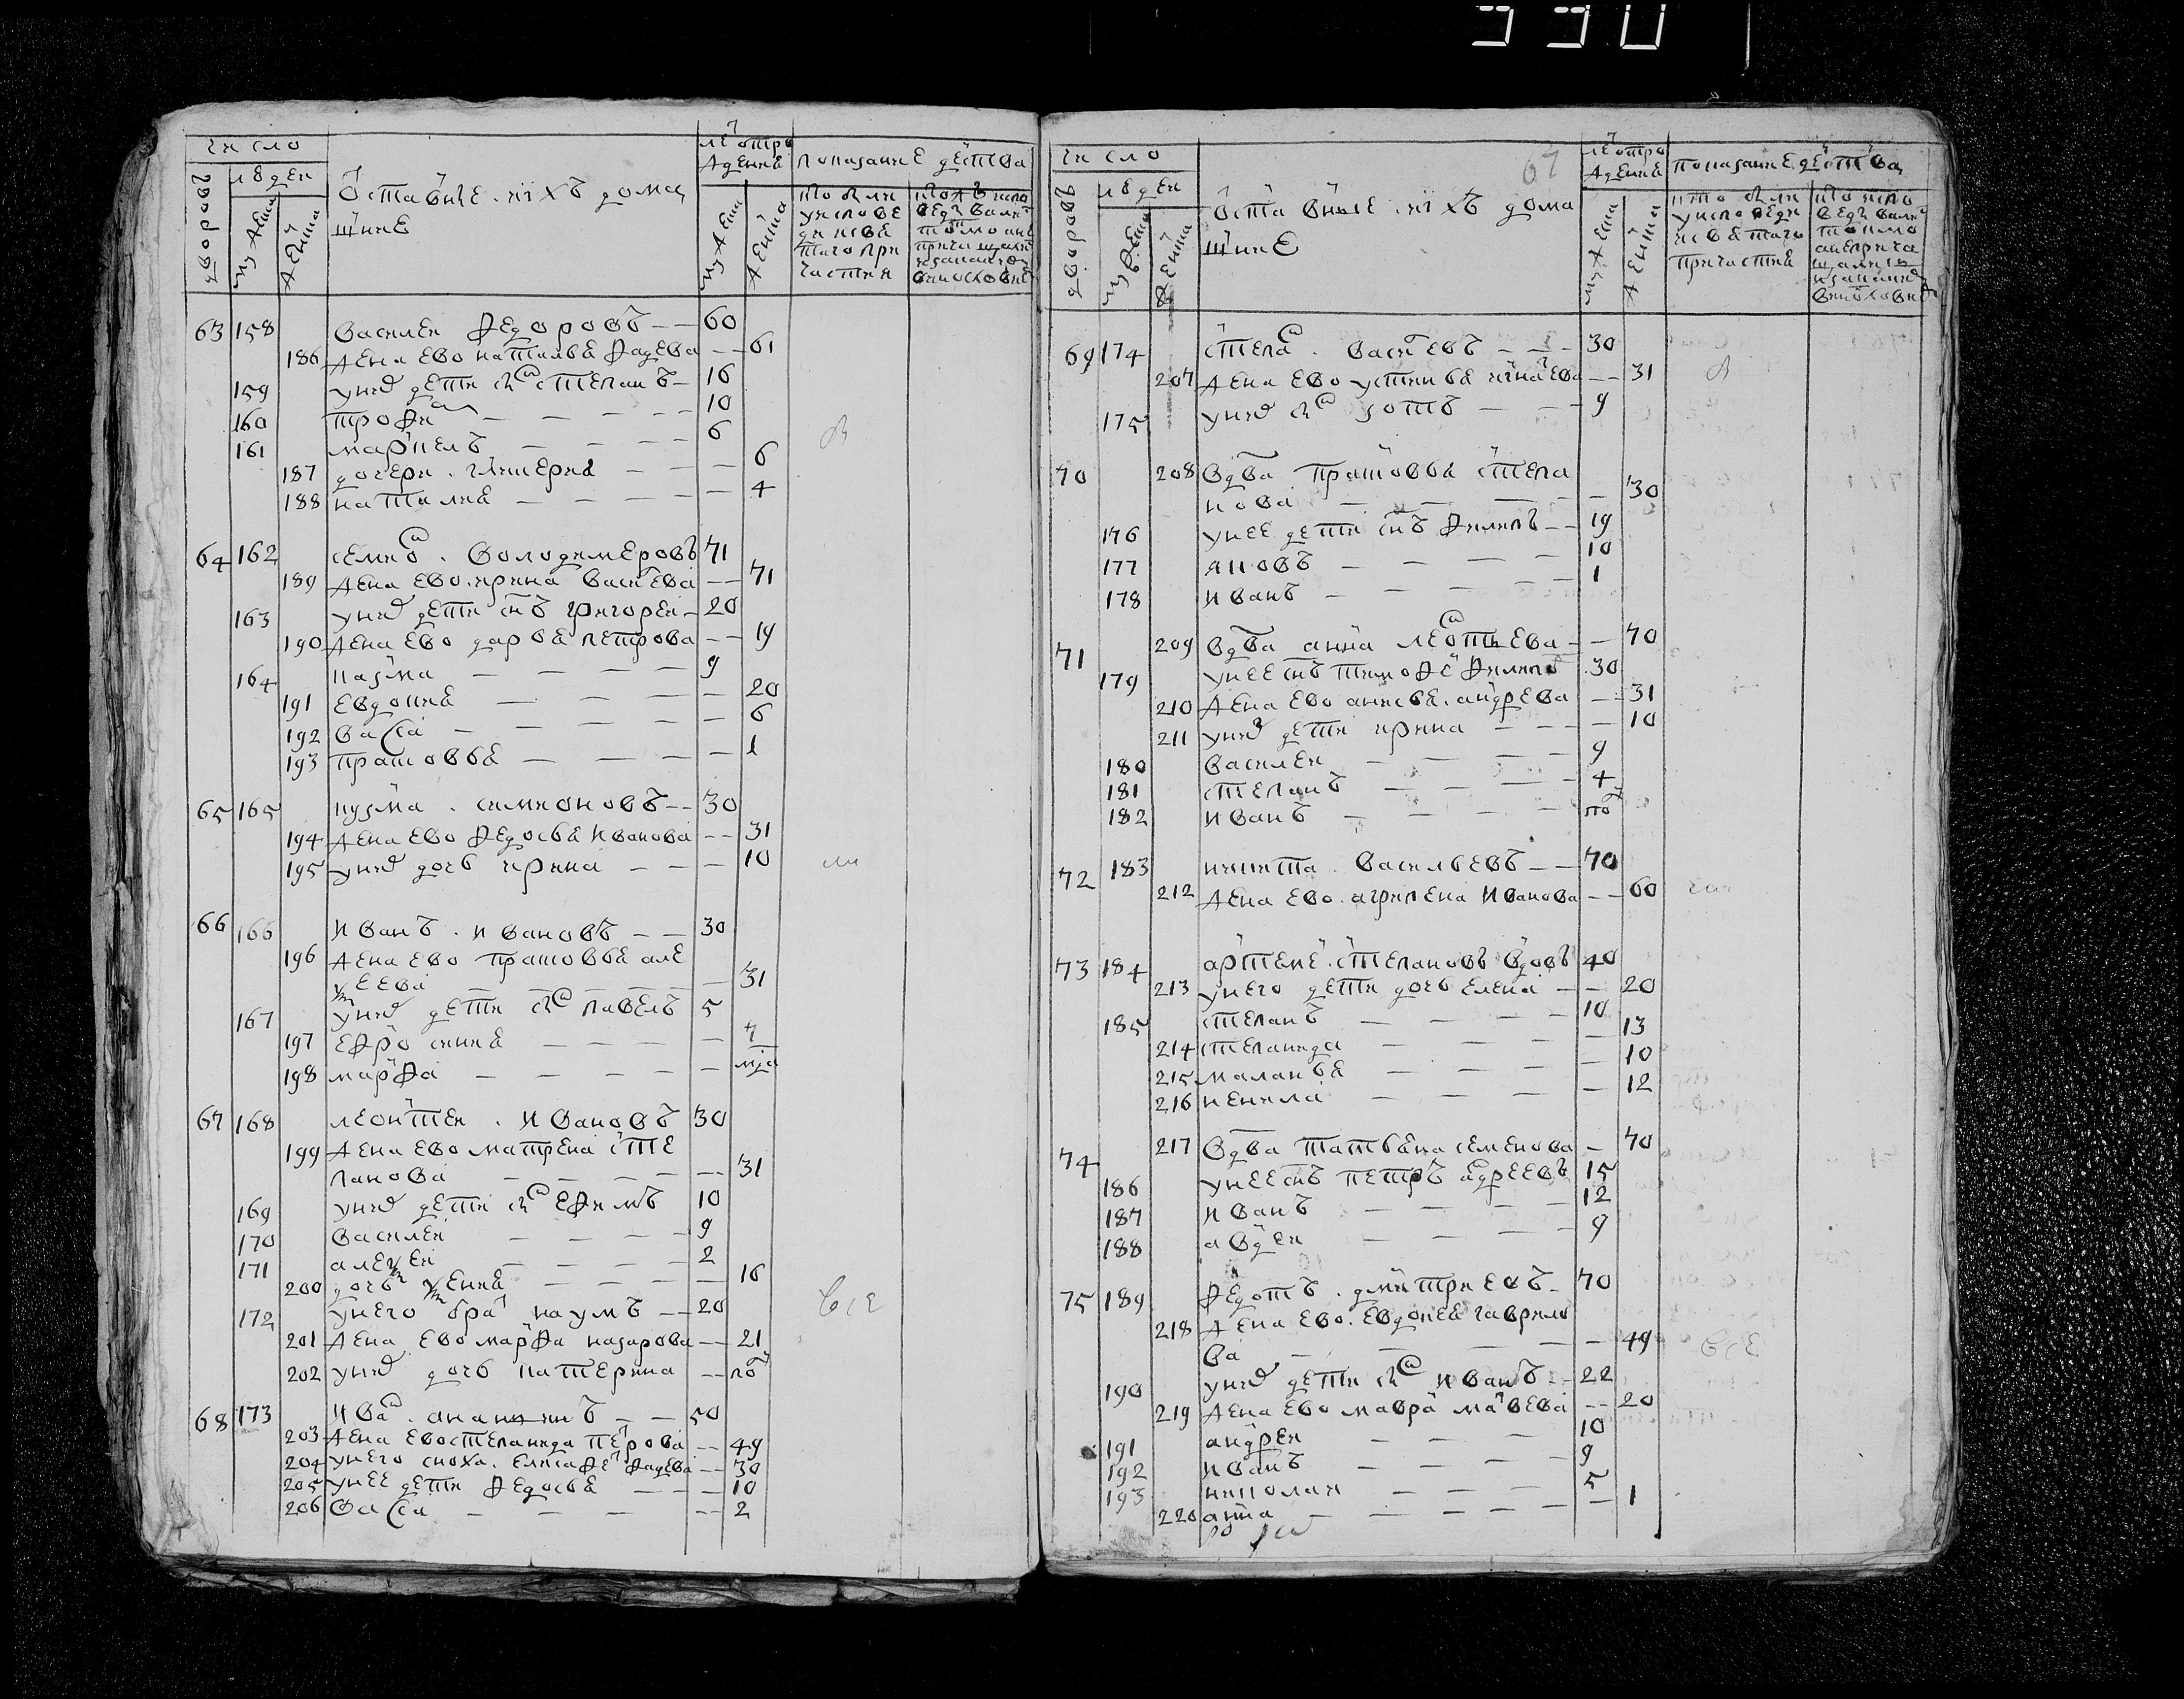 990
число
дворовъ
людеи
муж: пола
женска
Оставшие ихъ дома
шние
лѣ от ро
ждения
муж: пола
женска
показание действа
кто были
у исповѣ
ди и свя
таго при
частия
63 158 Василеи Федоровъ — — 60
186 Жена ево Наталья Фадеева — — 61
159 у нихъ дети сынъ Степанъ — 16
160 Трофим — — — — 10
161 Маркелъ — — — — 6
187 дочери Гликерия — — — 6
188 Наталия — — — — 4
64 162 Семенъ Володимеровъ 71
189 Жена ево Ирина Василева — — 71
163 у нихъ дети снъ Григореи — 20
190 Жена ево Дарья Петрова — — 19
164 Казма — — — — 9
191 Евдокия — — — — 20
192 Васса — — — — 6
193 Прасковья — — — — 1
65 165 Кузма Симионовъ — — 30
194 Жена ево Федосья Иванова — — 31
195 у нихъ дочь Ирина — — — 10
66 166 Иванъ Ивановъ — — 30
196 Жена ево Прасковья Але
ѯеева — — — — — 31
167 у нихъ дети снъ Павелъ 5
197 Ефросиния — — — — 7
198 Марфа — — — — —
67 168 Леонтеи Ивановъ 30
199 Жена ево Матрена Сте
панова — — — — 31
169 у нихъ дети снъ Ефимъ 10
170 Василеи — — — — 9
171 Алеѯеи — — — — 2
200 дочь Ѯения — — — — 16
172 у него братъ Наумъ — — 20
201 Жена ево Марфа Назарова — — 21
202 у нихъ дочь Катерина — —
все
68 173 Иванъ Ананьинъ — — 50
203 Жена ево Степанида Петрова — — 49
204 у него сноха Елисафе Фадева — — 30
205 у нее дети Федосья — — 10
206 Васса — — — — 2
67
число
дворовъ
людеи
муж: пола
женска
Оставшие ихъ дома
шние
лѣ от ро
ждения
показание действа
кто были
у исповеди
и святаго
причастия
69 174 Степанъ Василевъ — — — 30
207 Жена ево Устинья Игнатева — — 31
175 у нихъ снъ Зотъ — — — 9
70 208 Вдва Прасковья Степа
нова — — — — 30
176 у нее дети снъ Филипъ — — 19
177 Яковъ — — — — 10
178 Иванъ — — — — 1
71 209 Вдва Анна Леонтьева — — 70
179 у нее снъ Тимофей Филипов 30
210 Жена ево Анисья Андреева — — 31
211 у них дети Ирина — — — 10
180 Василеи — — — — 9
181 Степанъ — — — — 4
182 Иванъ — — — —
72 183 Никита Васильевъ — — 70
212 Жена ево Агрипена Иванова — — 60
73 184 Артемей Степановъ вдовъ 40
213 у него дети дочь Елена — — 20
185 Степанъ — — — — 10
214 Степанида — — — — 13
215 Маланья — — — — 10
216 Ненила — — — — 12
74 217 Вдва Татьяна Семенова — 70
186 у нее снъ Петръ Адреевъ 15
187 Иванъ — — — — 12
188 Авдеи — — — — 9
75 189 Федотъ Дмитриевъ — 70
218 Жена ево Евдокея Гаврило
ва — — — — — 49
все
190 у нихъ дети снъ Иванъ — — 22
219 Жена ево Мавра Мавеева — — 20
191 Андреи — — — — 10
192 Иванъ — — — — 9
193 Николаи — — — — 5
220 Анна — — — — — 1